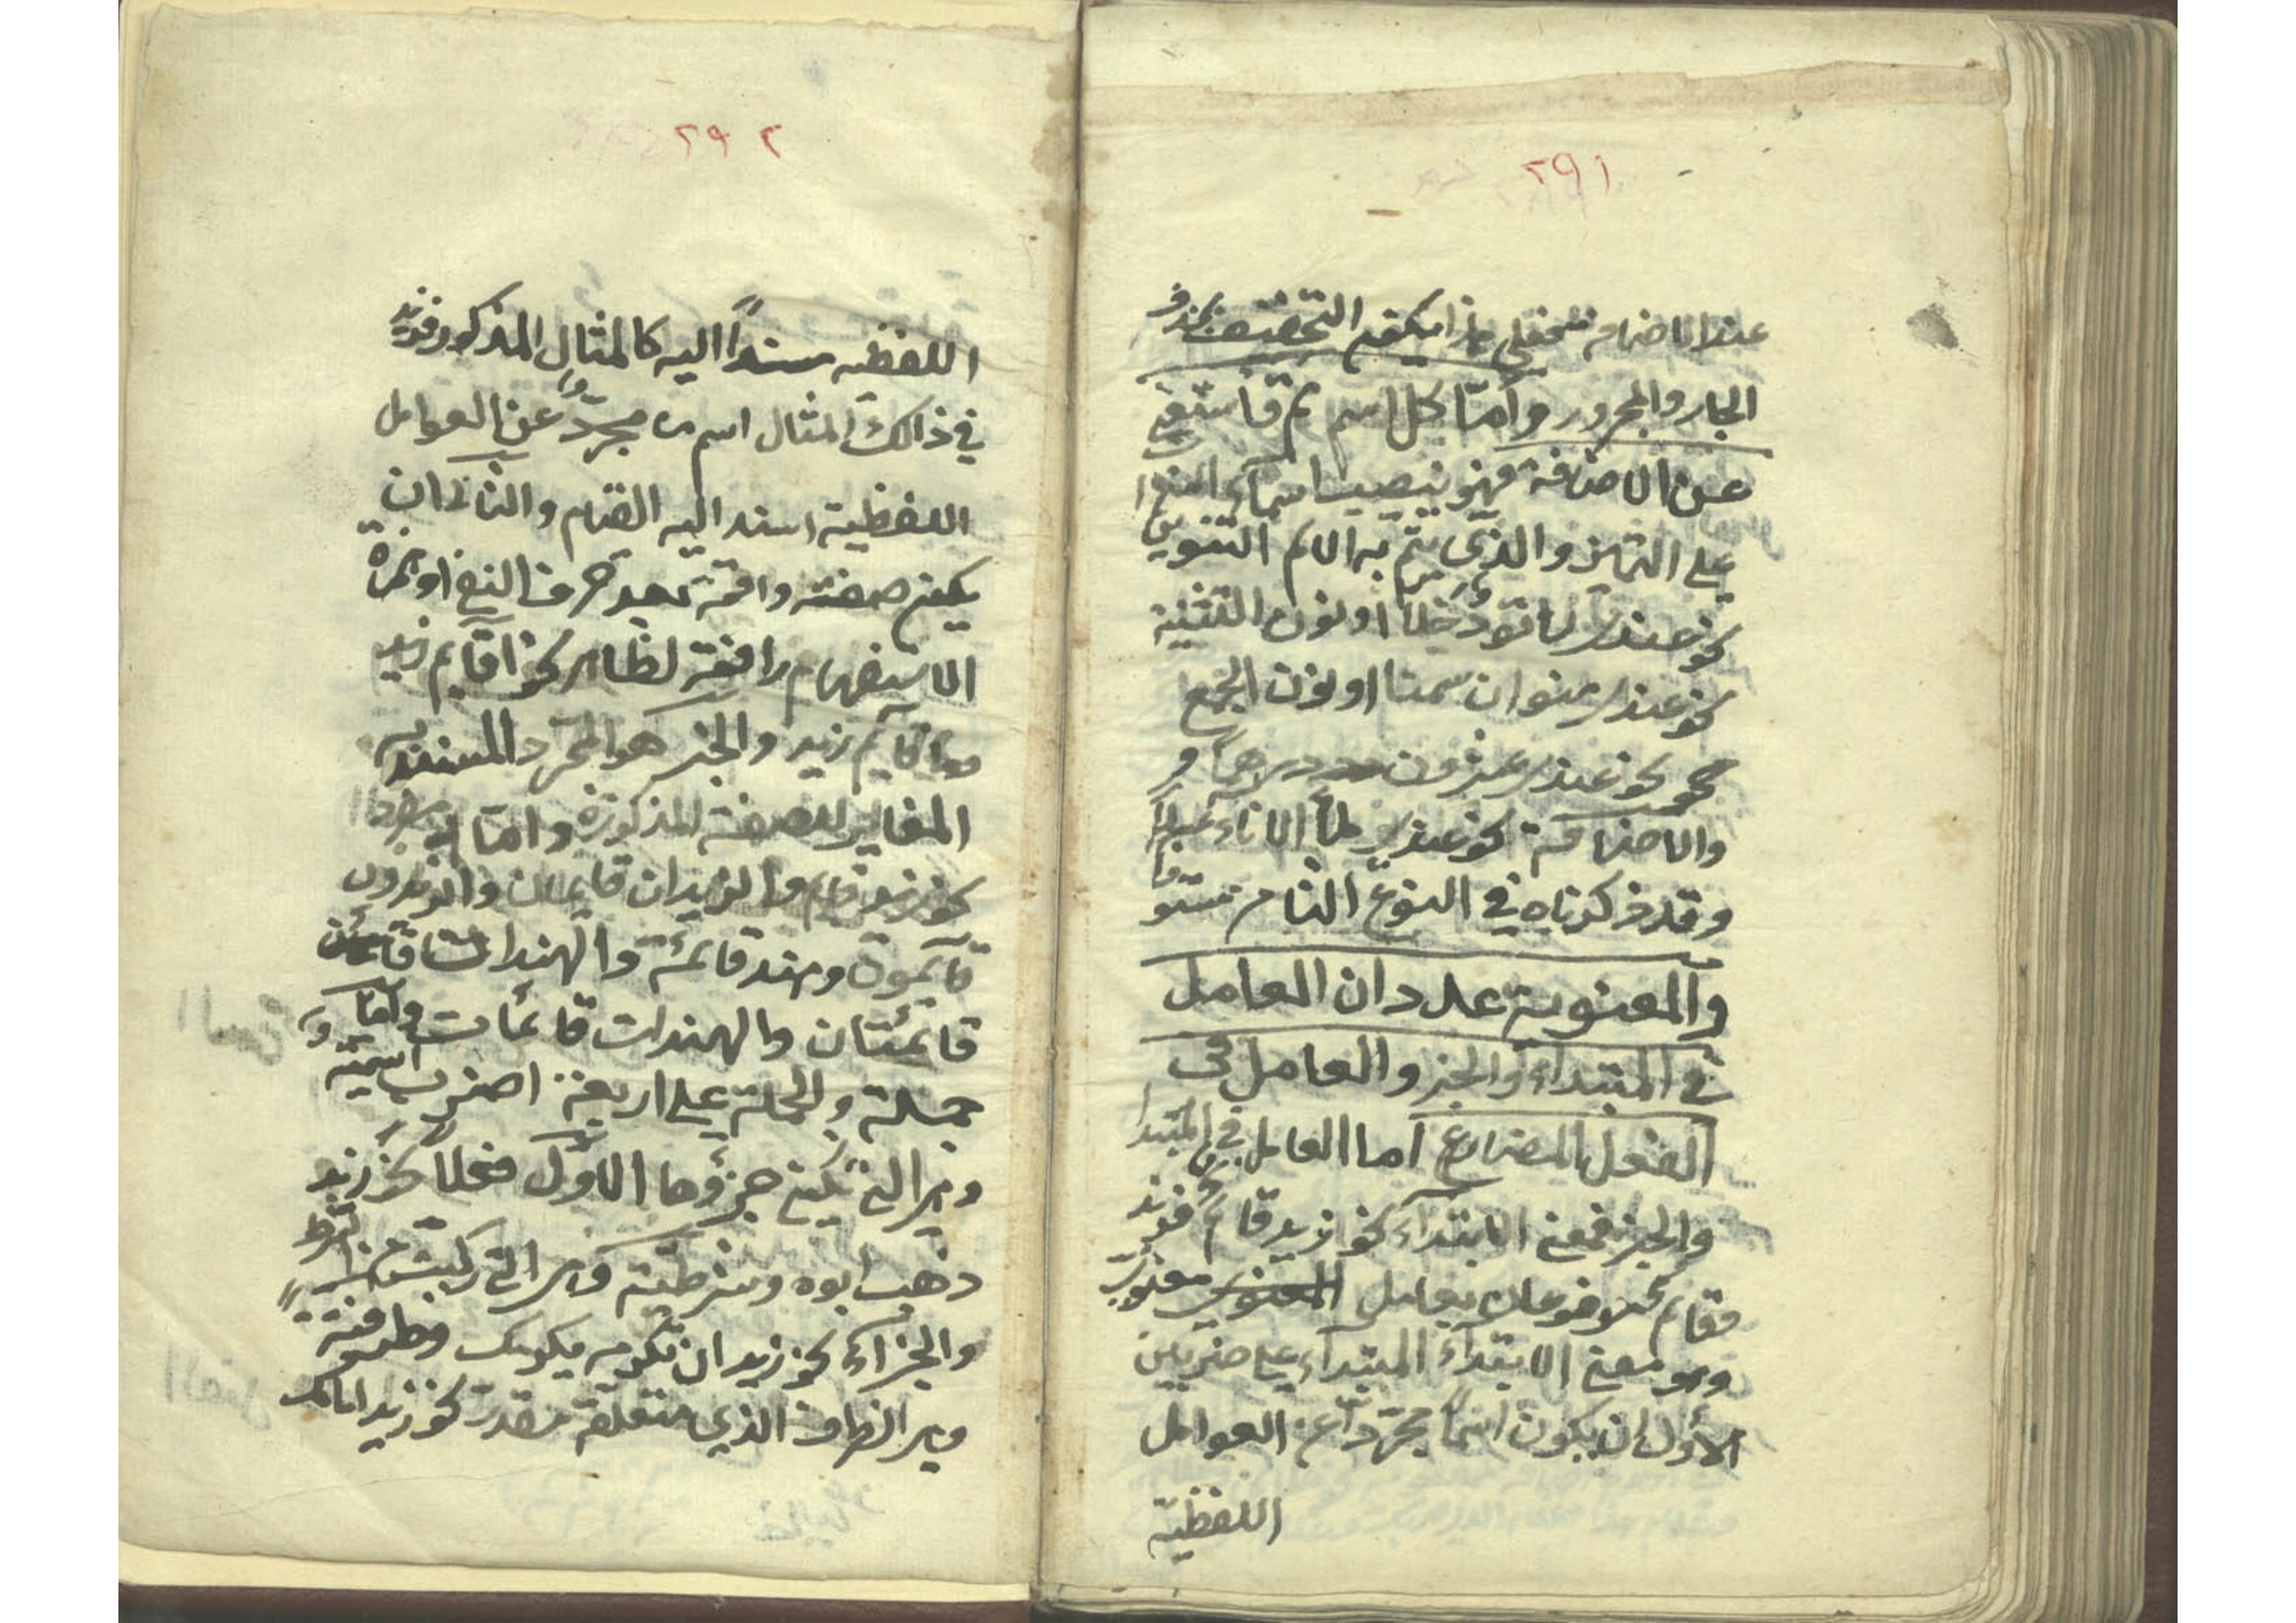 ٢٩١
عند الاضافة التخفيف بحذف
الجار والمجرور وأمّا كل اسم تم فاستغنى
عن الاضافة فهو ينصب اسماً
على التميز والذي يتم به الاسم التنوين
نحو عندي راقود خلاً او نون التثنية
نحو عندي منوان سمنا او نون الجمع
نحو عندي عشرون درهماً و
والاضافة نحو عندي ملأ الاناء عسلاً
وقد ذكرناه في النوع الثامن مستوفا
والمعنوية عددان العامل
في المبتداء والخبر والعامل في
الفعل المضارع اما العامل في المبتدا
والخبر فمعنى الابتداء نحو زيد قام فزيد
وقام مرفوعان بعامل المعنوي معنوي
وهو معنى الابتداء المبتداء على ضربين
الأول ان يكون اسماً مجرّداً عن العوامل
اللفظية
٢٩٢
اللفظيه مسنداً اليه كالمثال المذكور فزيد
في ذالك المثال اسم مجرّد عن العوامل
اللفظية اسند اليه القيام والثاني ان
يكون صفة واقعة بعد حرف النفي او همزة
الاستفهام رافعة لظاهر نحو اقآيم زيد
وما قآيم زيد والخبر هو المجرّد المسند به
المغاير للصفة المذكورة وامّا مفردا
نحو زيد قايم والزيدان قايمان والزيدون
قآيمون وهند قائمة والهندان
قائمتان والهندات قائمات وامّا
جملة والجملة على اربعة اضرب اسميّة
وهي التي يكون جزؤها الاوّل فعلاً نحو زيد
ذهب ابوه وشرطيّة وهي التي ركبت من الشرط
والجزاء نحو زيد ان تكرمه يكرمك وظرفيّة
وهي الظرف الذي متعلقه مقدر نحو زيد امامك